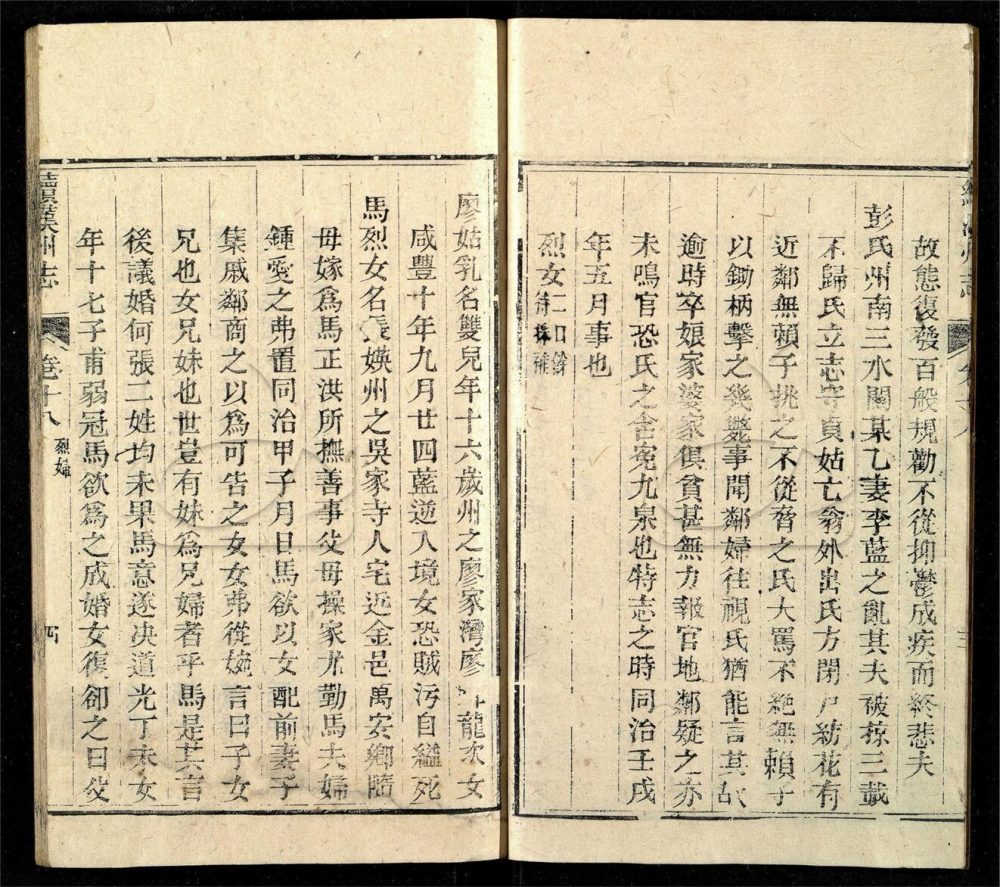 故態復發百般規勸不從抑鬱成疾而終悲夫
彭氏州南三水關某乙妻李藍之亂其夫被掠三載
不歸氏立志守貞姑亡翁外出氏方閉戶紡花有
近鄰無賴子挑之不從脅之氏大罵不絕無賴子
以鋤柄擊之幾斃事聞鄰婦往視氏猶能言其故
逾時卒娘家婆家俱貧甚無力報官地鄰疑之亦
未鳴官恐氏之含冤九泉也特志之時同治壬戌
年五月事也
烈女二口餘待採補
廖姑乳名雙兒年十六歲州之廖家灣廖龍次女
咸豐十年九月廿四藍逆入境女恐賊污自縊死
馬烈女名義媖州之吳家寺人宅近金邑萬安鄉隨
母嫁為馬正洪所撫善事父母操家尤勤馬夫婦
鍾愛之弗置同治甲子月日馬欲以女配前妻子
集戚鄰商之以為可告之女女弗從婉言曰子女
兄也女兄妹也世豈有妹為兄婦者乎馬是其言
後議婚何張二姓均未果馬意遂決道光丁未女
年十七子甫弱冠馬欲為之成婚女復卻之曰父
續漢州志
卷十八
烈婦
四